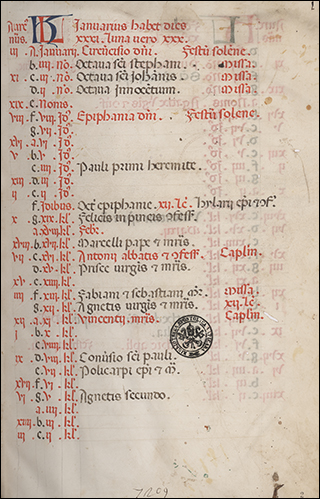 Januarius habet dies
nus. xxxi. Luna vero xxx.
iii A. Januarij. Circūcisio dn̄i. Festū solene.
b. iiii. no. Octaua sci stephani. Missa.
xi c. iii. no. Octaua sci Johānis Missa
d. ii. no. Octaua Innocētum
xix e. Nonis.
viii f. viii. Jd. Epiphania dn̄i. Festū solene.
g. vii.
xvi A. vi. Jd.
v b. v.
c. iiii. Jd. Pauli primi heremite.
xiii d. iii.
ii e. ii. Jd.
f. Jdibus. Oct epiphanie. xii. Lc. Hylarij epi
x g. xix. kl. Felicis in pincis
A. xviii. kl. Febr.
xviii b. xvii. kl. Marcelli pape mris.
vii c. xvi. kl. Antonij abbatis Caplm.
d. xv. kl. Prisce virgis mris.
xv e. xiiii. kl.
iiii f. xiii. kl. Fabiani sebastiani Missa
g. xii. kl. Agnetis virgis mris. xii. Lc.
xii A. xi. kl. Vincentij mris. Caplm.
i b. x. kl.
c. ix. kl.
ix d. viii. kl. Conūsio sci pauli.
e. vii. kl. Policarpi epi
xvii f. vi. kl.
vi g. v. kl. Agnetis secundo.
A. iiii. kl.
xiiii b. iii. kl.
iii c. ii. kl.